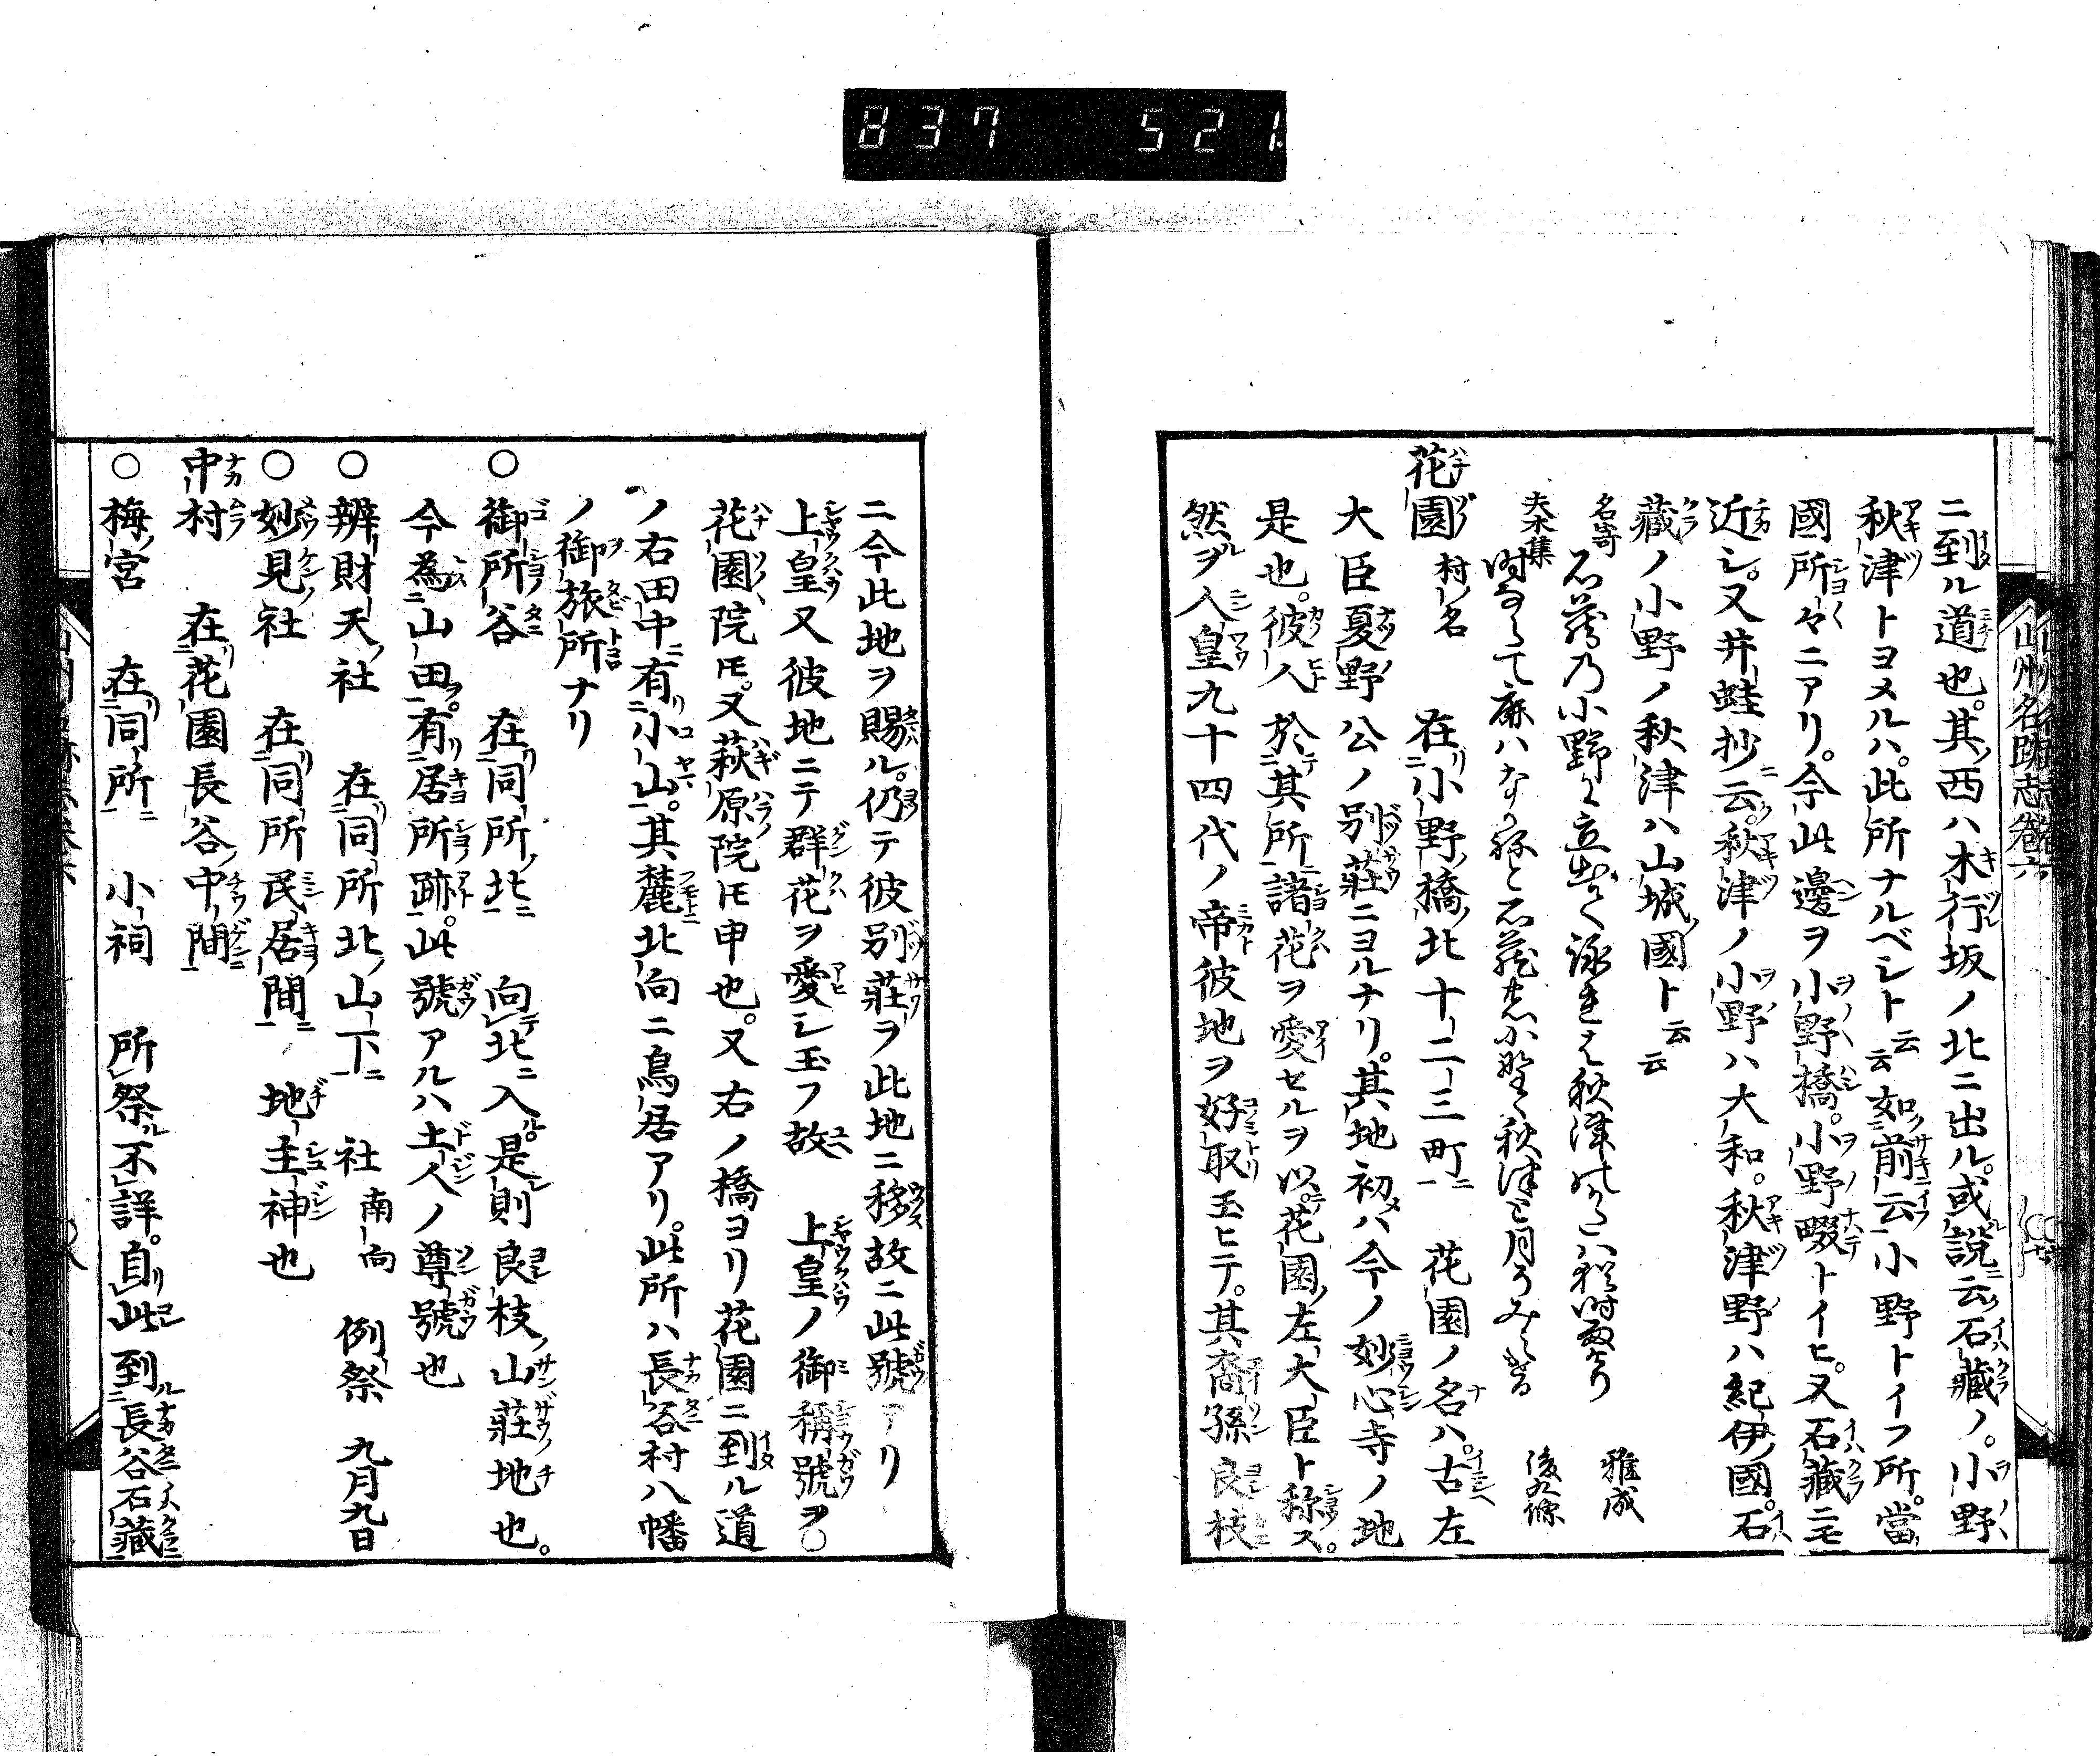 837 521
山州名跡志卷六
ニ到ル道也。其西ハ木行坂ノ北ニ出ル。或説云石藏ノ。小野
秋津トヨメルハ。此所ナルベシト云云如前云小野トイフ所。當
國所々ニアリ。今此邊ヲ小野橋。小野畷トイヒ。又石藏ニモ
近シ。又井蛙抄云。秋津ノ小野ハ大和。秋津野ハ紀伊國。石
藏ノ小野ノ秋津ハ山城國ト云云
名寄
雅成
夫木集
花園 村名 在小野橋北十二三町 花園ノ名ハ。古左
大臣夏野公ノ別莊ニヨルナリ。其地初ハ今ノ妙心寺ノ地
是也。彼人於其所諸花ヲ愛セルヲ以。花園左大臣ト称ス。
然ヲ人皇九十四代ノ帝彼地ヲ好取玉ヒテ。其裔孫良枝
ニ今此地ヲ賜ル。仍テ彼別莊ヲ此地ニ移故ニ此號アリ
上皇又彼地ニテ群花ヲ愛シ玉フ故 上皇ノ御稱號ヲ○
花園院モ。又萩原院モ申也。又右ノ橋ヨリ花園ニ到ル道
ノ右田中有小山。其麓北向ニ鳥居アリ。此所ハ長谷村八幡
ノ御旅所ナリ
○御所谷 在同所北 向北ニ入。是則良枝山莊地也。
今為山田。有居所跡。此號アルハ土人ノ尊號也
○辨財天社 在同所北山下 社南向 例祭 九月九日
○妙見社 在同所民居間 地主神也
中村 在花園長谷中間
○梅宮 在同所 小祠 所祭不詳。自此到長谷石藏